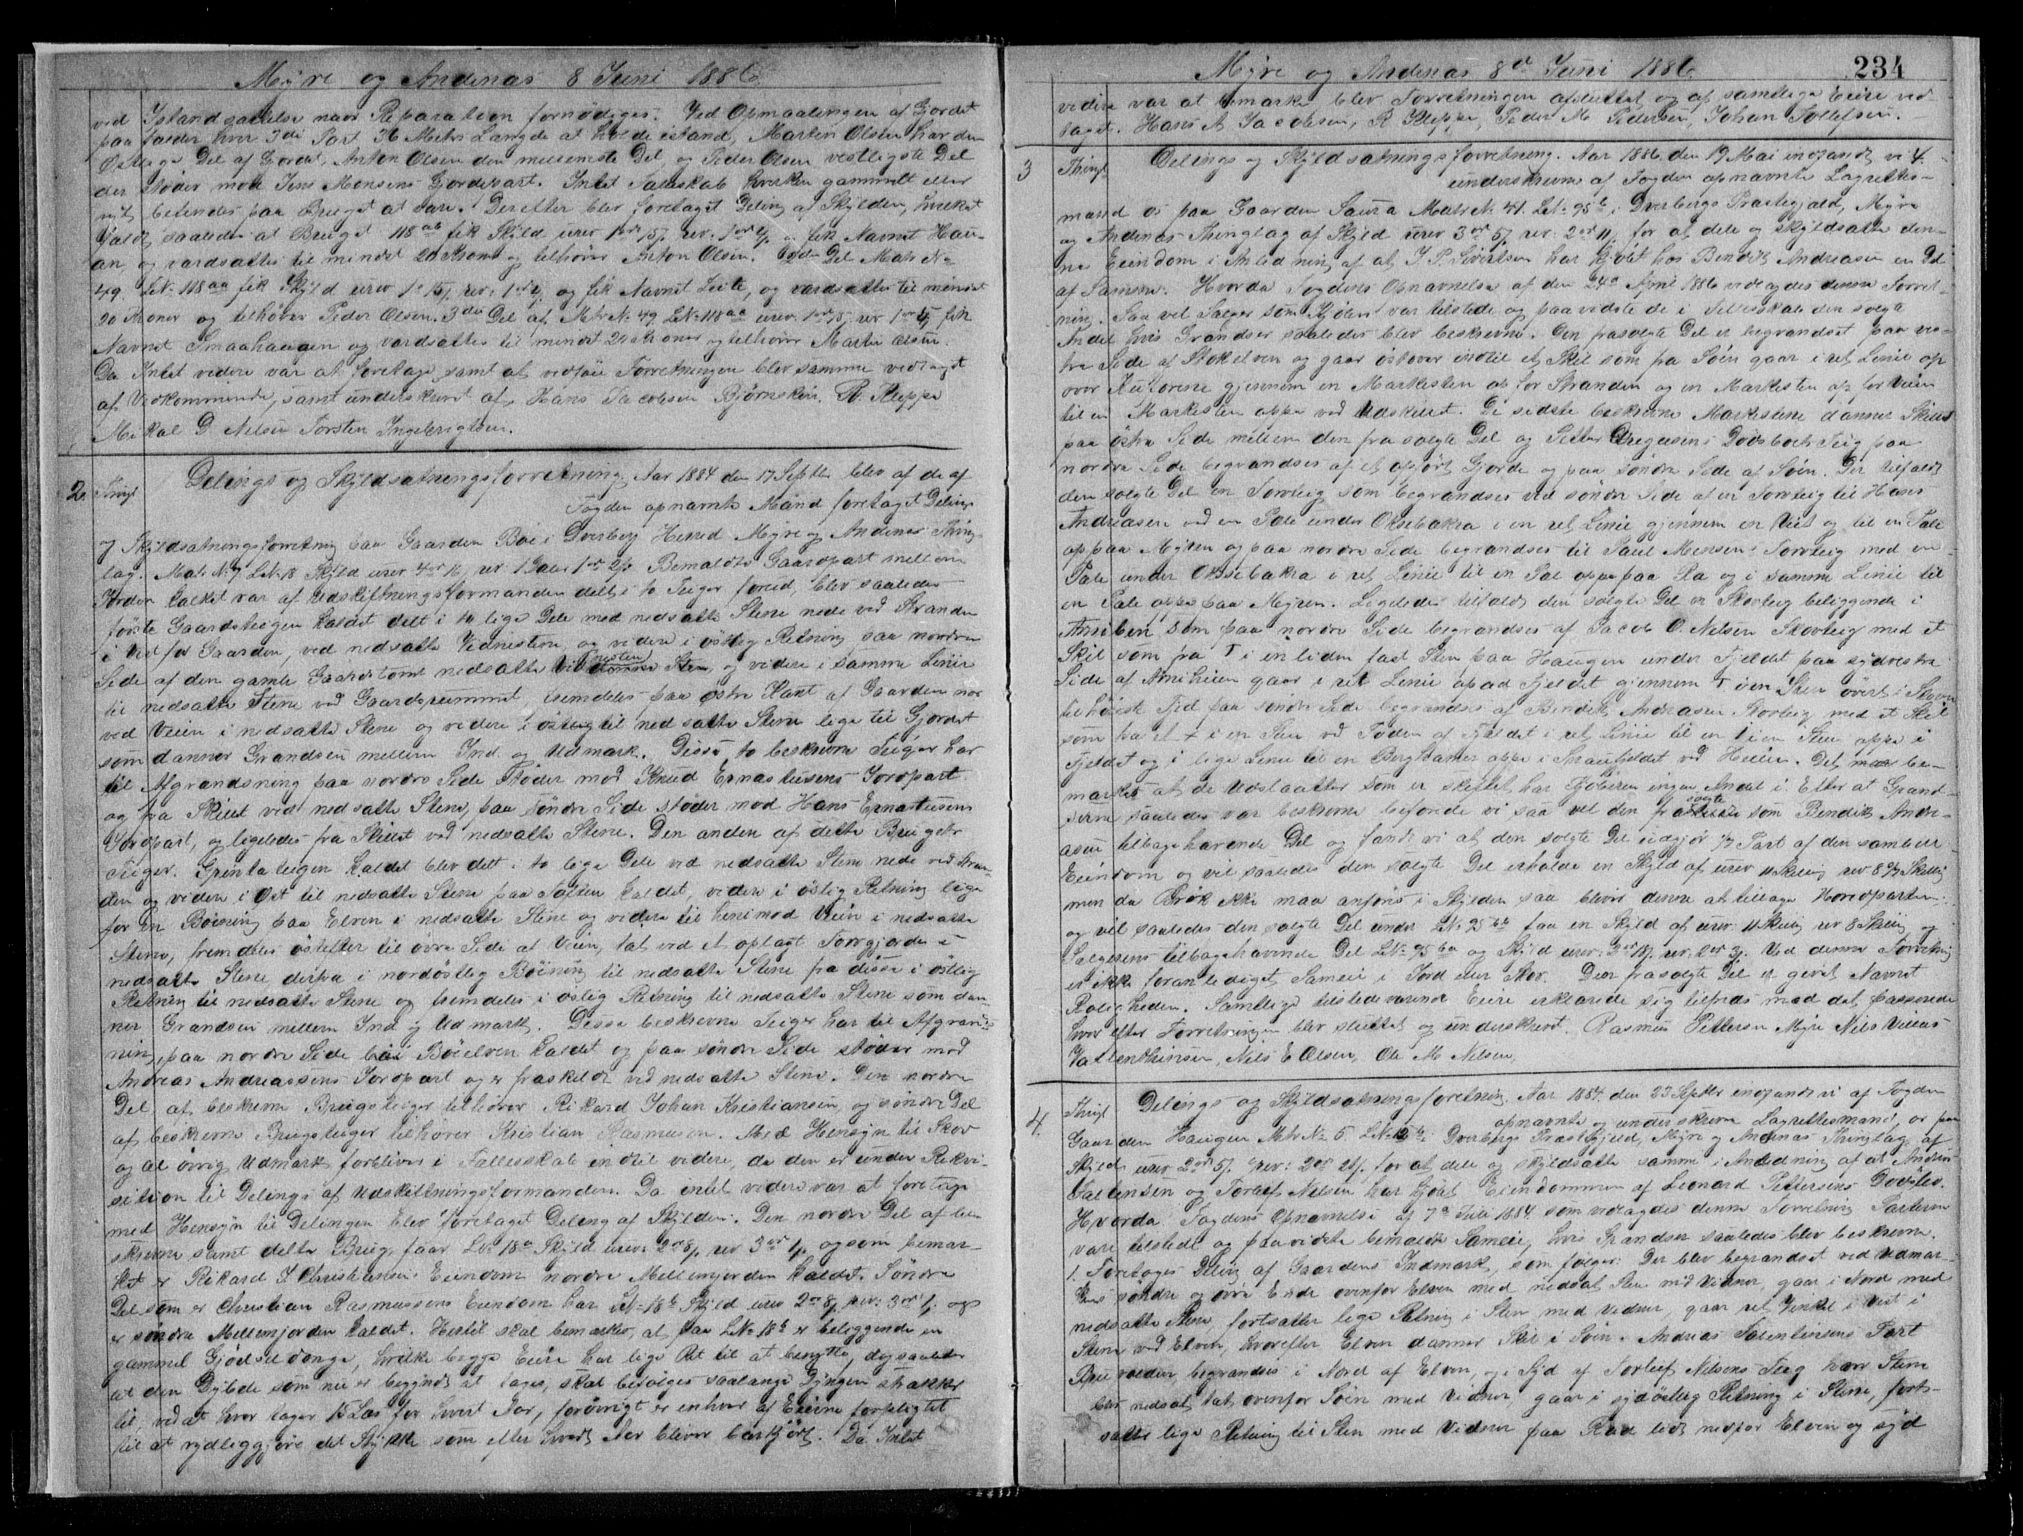 Myre og Andenæs 8 Juni 1886
ved Istandsættelse naar Reparation fornødiges. Ved Opmaalingen af Gjerdet
paa falder hver 3die Part 76 Meters Længde at holde istand, Martin Olsen har den
Østlige Del af Gjerdet, Anton Olsen den mellemste Del, og Peder Olsen vestligste Del
der støder mod Jens Monsens Gjerdepart. Intet Fælleskab hverken gammelt eller
nyt befindes paa Bruget at være. Derefter blev foretaget Deling af Skylden, hvilket
faldt saaledes at Bruget 118 ab fik Skyld urev 1 ort 15 /, rev. 1 ort 4 / og fik Navnet Hau-
en og værdsattes til mindst 20 Kroner og tilhører Anton Olsen. 2den Del Matr №
49 L№ 118 aa fik Skyld urev 1 o 15 /, rev. 1 ort 4 / og fik Navnet Leite, og værdsattes til mindst
20 Kroner og tilhører Peder Olsen. 3die Del af Matr №. 49 L№ 118 aa urev. 1 ort 15 / rev 1 ort 4 / fik
Navnet Smaahaugen og værdsattes til mindst 20 Kroner og tilhører Martin Olsen.
Da Intet videre var at foretage samt at vedføie Forretningen blev samme vedtaget
af Vedkommende, samt underskrevet af, Hans Jacobsen Bjørnskin. R Kleppe
Mikal D. Nilsen Torsten Ingebrigtsen.
2 Thingl Delings og Skyldsætningsforretning Aar 1884 den 17 Septbr blev af de af
Fogden opnævnte Mænd foretaget Delings
og Skyldsætningsforretning paa Gaarden Bøe i Dverberg Herred Myre og Andenæs Thing-
lag. Matr № 9 L№ 18 Skyld urev 4 ort 16, rev 1 Daler 1 ort 2 /. Bemældte Gaardpart mellem
Jorden kaldet var af Udskiftningsformanden delt i to Teiger forud, blev saaledes
første Gaardsteigen kaldet delt i to lige Dele med nedsatte Stene nede ved Stranden
i Vest for Gaarden, ved nedsatte Vidnesten og videre i østlig Retning saa nordre
Side af den gamle Gaardstomt nedsatte Vidnesten Sten, og videre i samme Linie
til nedsatte Stene ved Gaardsrummet fremdeles paa østre Kant af Gaarden nær
ved Veien i nedsatte Stene og videre i østlig til nedsatte Stene lige til Gjerdet
som danner Grændsen mellem Ind og Udmark. Disse to beskrevne Teiger har
til Afgrændsning paa nordre Side støder mod Knud Ernastusens Jordpart
og fra Skillet ved nedsatte Stene, paa søndre Side støder mod Hans Ernastusens
Jordpart, og ligeledes fra Skillet ved nedsatte Stene. Den anden af dette Brugets
Teiger. Grenta teigen kaldet blev delt i to lige Dele ved nedsatte Stene nede ved Stran-
den og videre i Øst til nedsatte Stene paa kaldet, videre i østlig Retning lige
for En Bøining paa Elven i nedsatte Stene og videre til henimod Veien i nedsatte
Stene, fremdeles østefter til øvre Side af Veien, tæt ved et oplagt Torvgjerde i
nedsatte Stene derfra i nordøstlig Bøining til nedsatte Stene fra disse i østlig
Retning til nedsatte Stene og fremdeles i østlig Retning til nedsatte Stene som dan-
ner Grændsen mellem Ind og Udmark. Disse beskrevne Teiger har til Afgrænds-
ning, paa nordre Side Bøielven kaldet og paa søndre Side støder mod
Andreas Andreassens Jordpart og er fraskildt ved nedsatte Stene. Den nordre
Del af beskrevne Brugsteiger tilhører Rikard Johan Kristiansen, og søndre Del
af beskrevne Brugsteiger tilhører Kristian Rasmusen. Med Hensyn til Skov
og al øvrig Udmark forbliver i Fælleskab indtil videre, da den er under Rekvi-
sition til Delings af Udskiftningsformanden. Da intet videre var at foretage
med Hensyn til Delingen blev foretaget Deling af Skylden. Den nordre Del af be-
skrevne samt delte Brug, faar L№ 18 a Skyld urev 2 ort 8 / rev 3 ort 1 / og som bemær-
ket er Rikard J Christiansens Eiendom nordre Mellemjorden kaldet. Søndre
Del som er Christian Rasmussens Eiendom har L№ 18 b Skyld urev 2 ort 8 / rev: 3 ort 1 / og
er søndre Mellemjorden kaldet. Hertil skal bemærkes, at paa L№ 18 b er beliggende en
gammel Gjødseldynge, hvilke begge Eiere har lige Ret til at benytte, dog saaledes
at den Dybde som nu er begyndt at tages, skal befølges saalænge Dyngen strækker
til ved at hver tager 15 Læs for hvert Aar, forøvrigt er enhver af Eierne forpligtet
til at rydliggjøre det Stykke som efter hvert Aar bliver bortkjørt. Da Intet
Myre og Andenæs 8de Juni 1886 234
videre var at bemærke, blev Forretningen afsluttet og af samtlige Eiere ved-
taget. Hans A Jacobsen, R Kleppe, Peder M Pedersen, Johan Tollefsen.
3 Thingl Delings og Skyldsætningsforretning. Aar 1886 den 19 Mai indfandt vi 4
underskrevne af Fogden opnævnte Lagrettes-
mænd os paa Gaarden Saura Matr № 41. L№ 95 b i Dverbergs Præstegjæld, Myre
og Andenæs Thinglag af Skyld urev 3 ort 5 / rev: 2 ort 11 / for at dele og skyldsætte den-
ne Eiendom i Anledning af at I P. Sivertsen har kjøbt hos Bendik Andreasen en Del
af Samme. Hvorda Fogdens Opnævnelse af den 24de April 1886 vedtagdes denne Forret-
ning. Saa vel Sælger som Kjøber var tilstede og paaviste de i Fælleskab den solgte
Andel hvis Grændser saaledes blev beskrevne. Den frasolgte Del er begrændset paa ves-
tre Side af Stokelven og gaar østover indtil et Skil som fra Søen gaar i ret Linie op
over gjennem en Markesten op for Stranden og en Markesten op for Veien
til en Markesten oppe ved Udskillet. De sidste beskrevne Markestene danner Skillet
paa østre Side mellem den fra solgte Del og Petter Gregusens Dødsboets Teig paa
nordre Side begrændses af et opført Gjerde og paa søndre Side af Søen. Der tilfaldt
den solgte Del en Torvteig som begrændses ved søndre Side af en Torvteig til Hans
Andreasen ved en Pæle under Oksebakka i en ret Linie gjennem en Veit og til en Pæle
op paa Myren og paa nordre Side begrændses til Paul Monsens Torvteig med en
Pæle under Oksebakka i ret Linie til en Pæl oppe paa Ra og i samme Linie til
en Pæle oppe paa Myren. Ligeledes tilfaldt den solgte Del en Skovteig beliggende i
som paa nordre Side begrændses af Jacob O. Nilsen Skovteig med et
Skil som fra T i en liden fast Sten paa Haugen under Fjeldet paa sydvestre
Side af gaar i ret Linie opad Fjeldet gjennem T i en Sten øverst i Skoven
til høieste Fjeld paa søndre Side begrændses af Bendik Andreasen Skovteig med et Skil
som fra et + i en Sten ved Foden af Fjeldet i ret Linie til en T i en Sten oppe i
Fjeldet og i lige Linie til en Berghammer oppe i Smaafjeldet ved Heien. Det maa be-
mærkes at de Udslaatter som er skiftet har Kjøberen ingen Andel i. Efter at Grænd-
serne saaledes var beskrevne befarede vi saa vel den frasolgte som Bendik Andre-
asen tilbagehavende Del og fandt vi at den solgte Del udgjør 1/7 Part af den samlede
Eiendom og vil saaledes den solgte Del erholde en Skyld af urev 11 Skilling rev 8 6/7 Skilling
men da Brøk ikke maa anføres i Skylden saa bliver denne at tillægge Hovedparten
og vil saaledes den solgte Del under L№ 95 bb faa en Skyld af urev. 11 Skilling rev 8 Skilling og
Sælgerens tilbagehavende Del L№ 95 ba og Skyld urev: 2 ort 18 / rev. 2 ort 3 /. Ved denne Forretning
er ikke foranlediget Sameie i Jord eller Skov. Den frasolgte Del er givet Navnet
Roligheden. Samtlige tilstedeværende Eiere erklærede sig tilfreds med det passerede
hvorefter Forretningen blev sluttet og underskrevet. Rasmus Pettersen Myre Nils Villas-
Vallenthinsen, Nils E Olsen, Ole M Nilsen.
4. Thingl Delings og Skyldsætningsforretning. Aar 1884 den 23 Septbr indfandt vi af Fogden
opnævnte og underskrevne Lagrettesmænd, os paa
Gaarden Haugen Matr № 5. L№ Dverbergs Præstegjæld, Myre og Andenæs Thinglag af
Skyld urev 2 ort 5 / rev: 2 ort 21 / for at dele og skyldsætte samme i Anledning af at Andreas
Falentinsen og Torlef Nilsen har kjøbt Eiendommen af Leonard Pettersens Dødsbo.
Hvorda Fogdens Opnævnelse af 7de Juli 1884 som vedtagdes denne Forretning Parterne
var tilstede og paaviste bemældte Sameie, hvis Grændser saaledes blev beskrevne.
1. Foretoges Deling af Gaardens Indmark, som følger: Der blev begrændset ved Udmar-
kens søndre og øvre Ende ovenfor Elven med nedsat Sten med Vidner, gaar i Nord med
nedsatte Stene, fortsætter lige Retning i Sten med Vidner, gaar ret Vinkel i Vest i
Stene ved Elven, hvorefter Elven danner Skil i Søen. Andreas Falentinsens Part
begrændses i Nord af Elven, og i Syd af Torleif Nilsens Teig hvor Stene
blev nedsat tæt ovenfor Søen med Vidner gaar i sydøstlig Retning i Stene, fort-
sætte lige Retning til Sten med Vidner paa Rad lidt nedfor Elven og syd